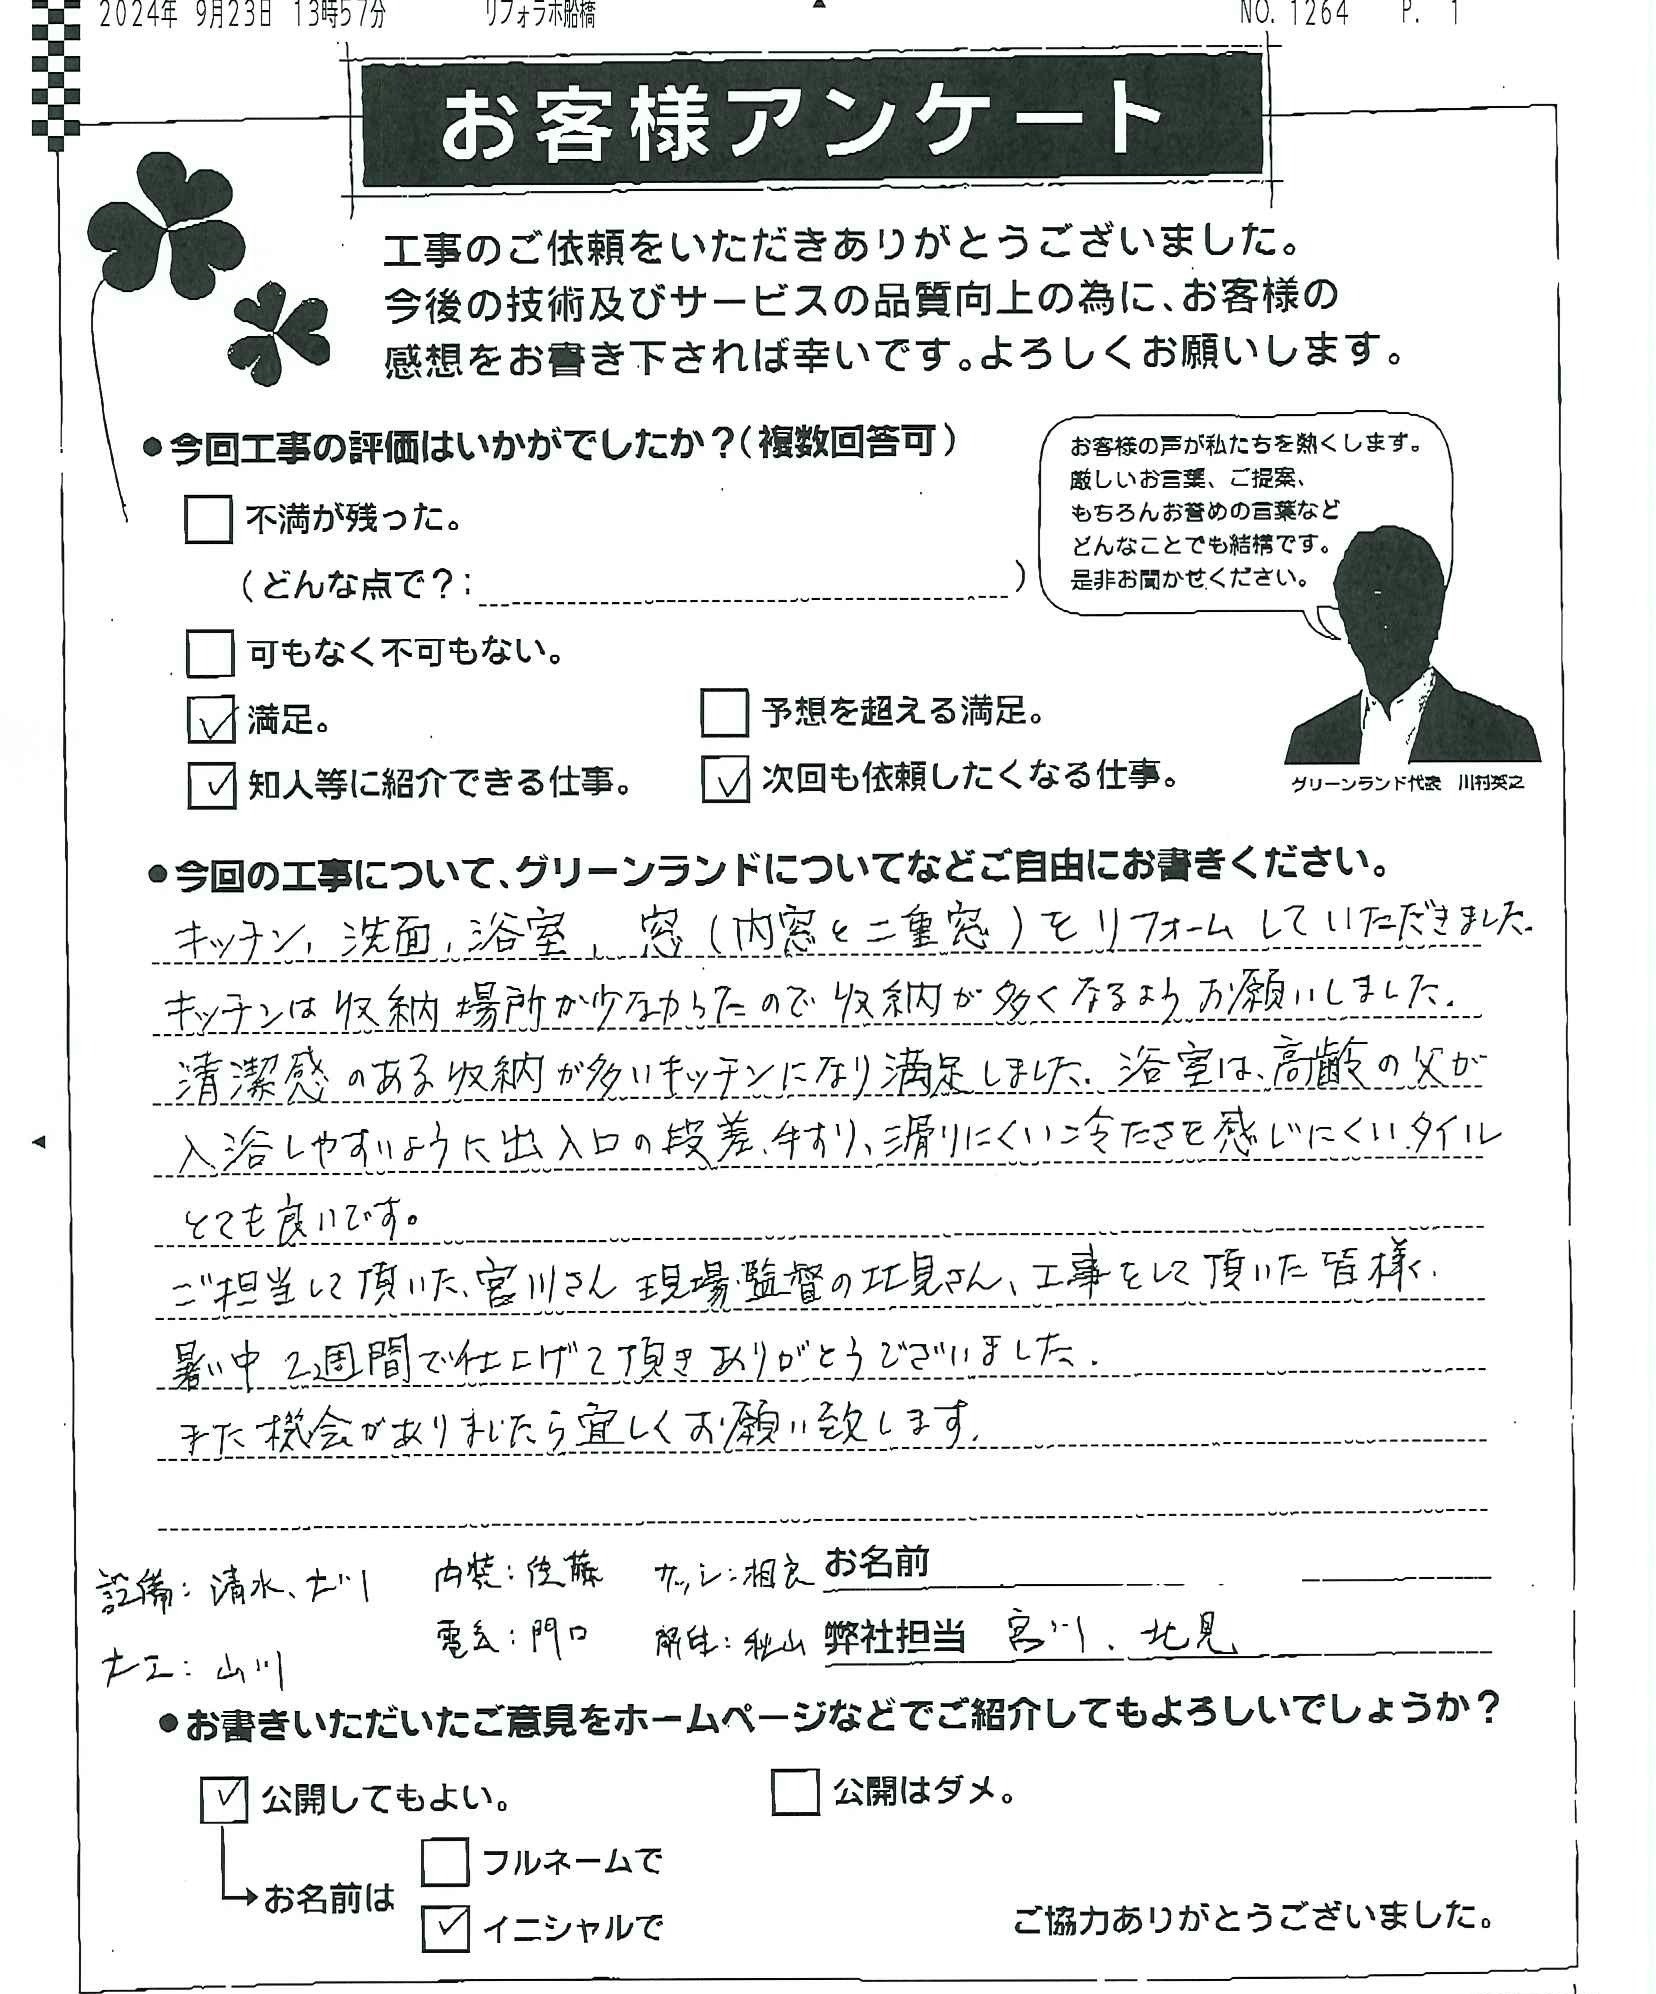 2024年 9月23日 13時57分 リフォラボ船橋 NO. 1264 P. 1
お客様アンケート
工事のご依頼をいただきありがとうございました。
今後の技術及びサービスの品質向上の為に、お客様の
感想をお書き下されば幸いです。よろしくお願いします。
●今回工事の評価はいかがでしたか？(複数回答可)
お客様の声が私たちを熱くします。
厳しいお言葉、ご提案、
もちろんお誉めの言葉など
どんなことでも結構です。
是非お聞かせください。
グリーンランド代表 川村英之
不満が残った。
(どんな点で？: )
可もなく不可もない。
満足。 予想を超える満足。
知人等に紹介できる仕事。 次回も依頼したくなる仕事。
●今回の工事について、グリーンランドについてなどご自由にお書きください。
キッチン, 洗面, 浴室, 窓(内窓と二重窓)をリフォームしていただきました.
キッチンは収納場所が少なかったので収納が多くなるようお願いしました.
清潔感のある収納が多いキッチンになり満足しました. 浴室は、高齢の父が
入浴しやすいように出入口の段差、手すり、滑りにくい冷たさを感じにくいタイル
とても良いです。
ご担当して頂いた、宮川さん 現場監督の北見さん、工事をして頂いた皆様、
暑い中2週間で仕上げて頂きありがとうございました.
また機会がありましたら宜しくお願い致します.
設備: 清水、古川 内装: 佐藤 サッシ: 相良 お名前
大工: 山川 電気: 門口 解体: 秋山 弊社担当 宮川、北見
●お書きいただいたご意見をホームページなどでご紹介してもよろしいでしょうか？
公開してもよい。 公開はダメ。
フルネームで
お名前は
イニシャルで
ご協力ありがとうございました。